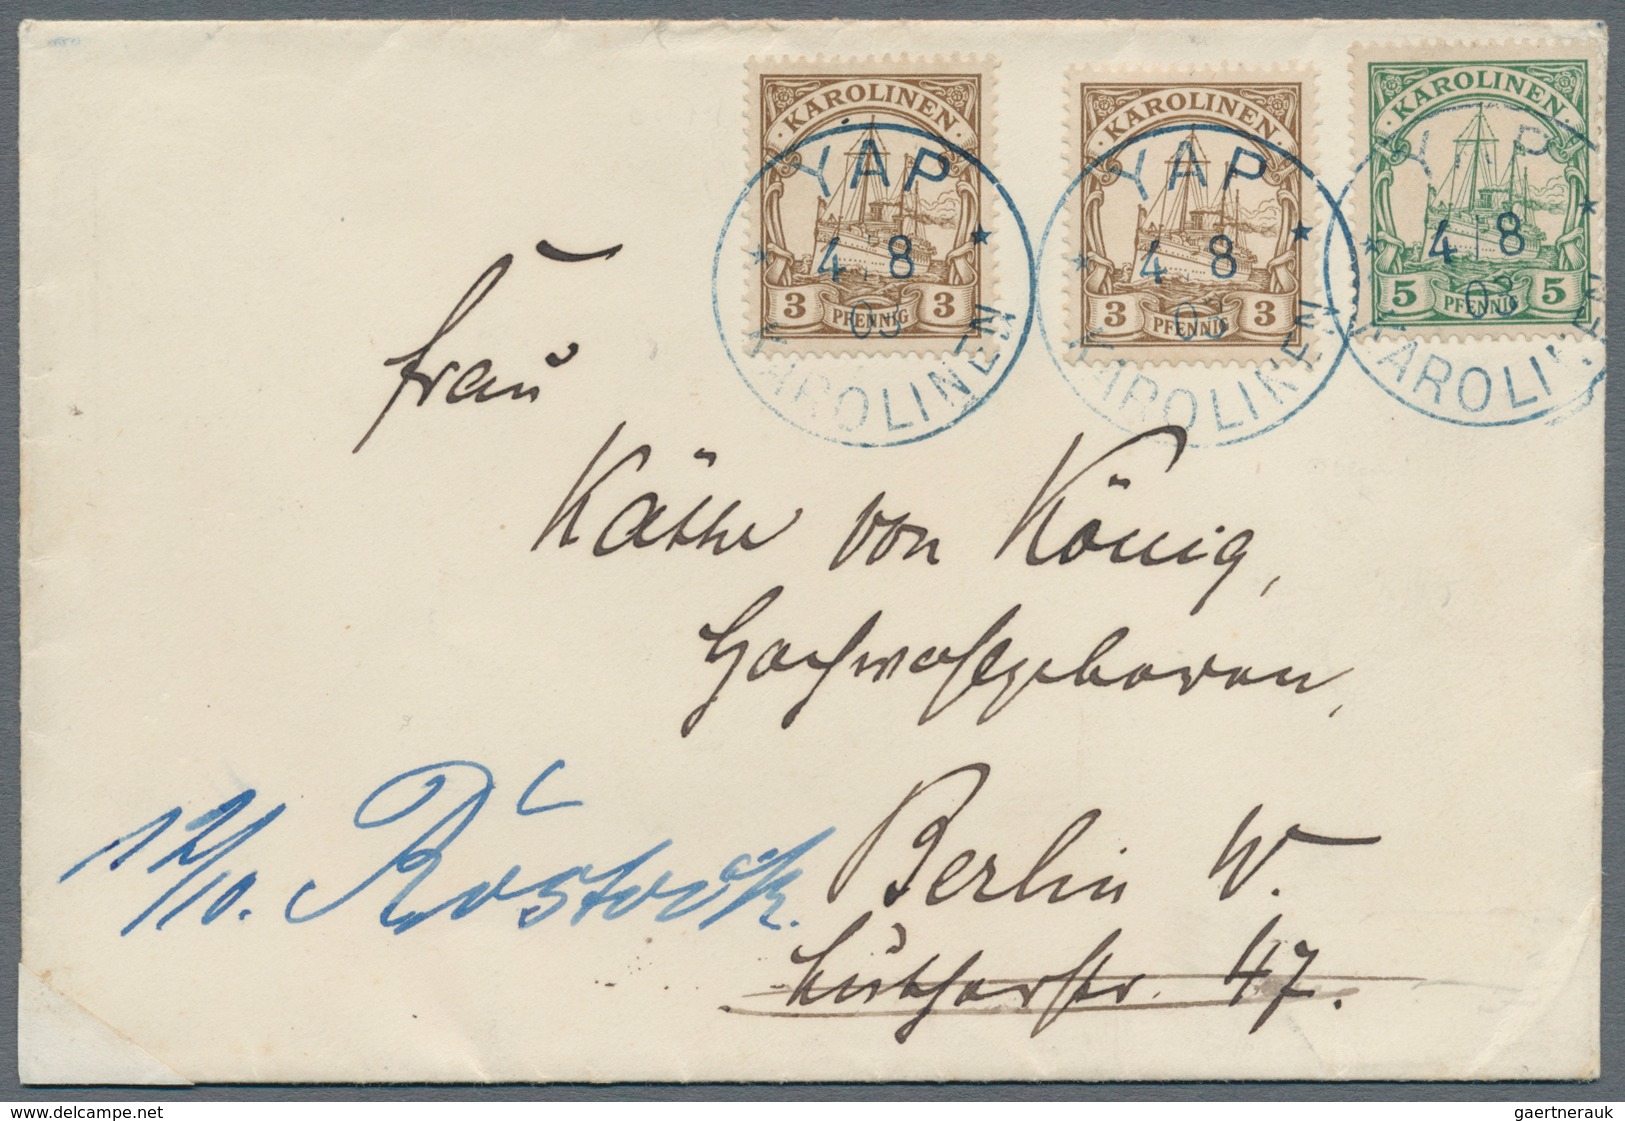 KAROLINEN
3 PFENNIG 3
KAROLINEN
3 PFENNIG 3
KAROLINEN
5 PFENNIG 5
YAP
4 8
03
KAROLINEN
YAP
4 8
03
KAROLINEN
YAP
4 8
03
KAROLINEN
Frau
Käthe von König,
Hochwohlgeboren,
Berlin W.
Lutherstr. 47.
12/10. Rostock.
www.delcampe.net
gaertnerauk